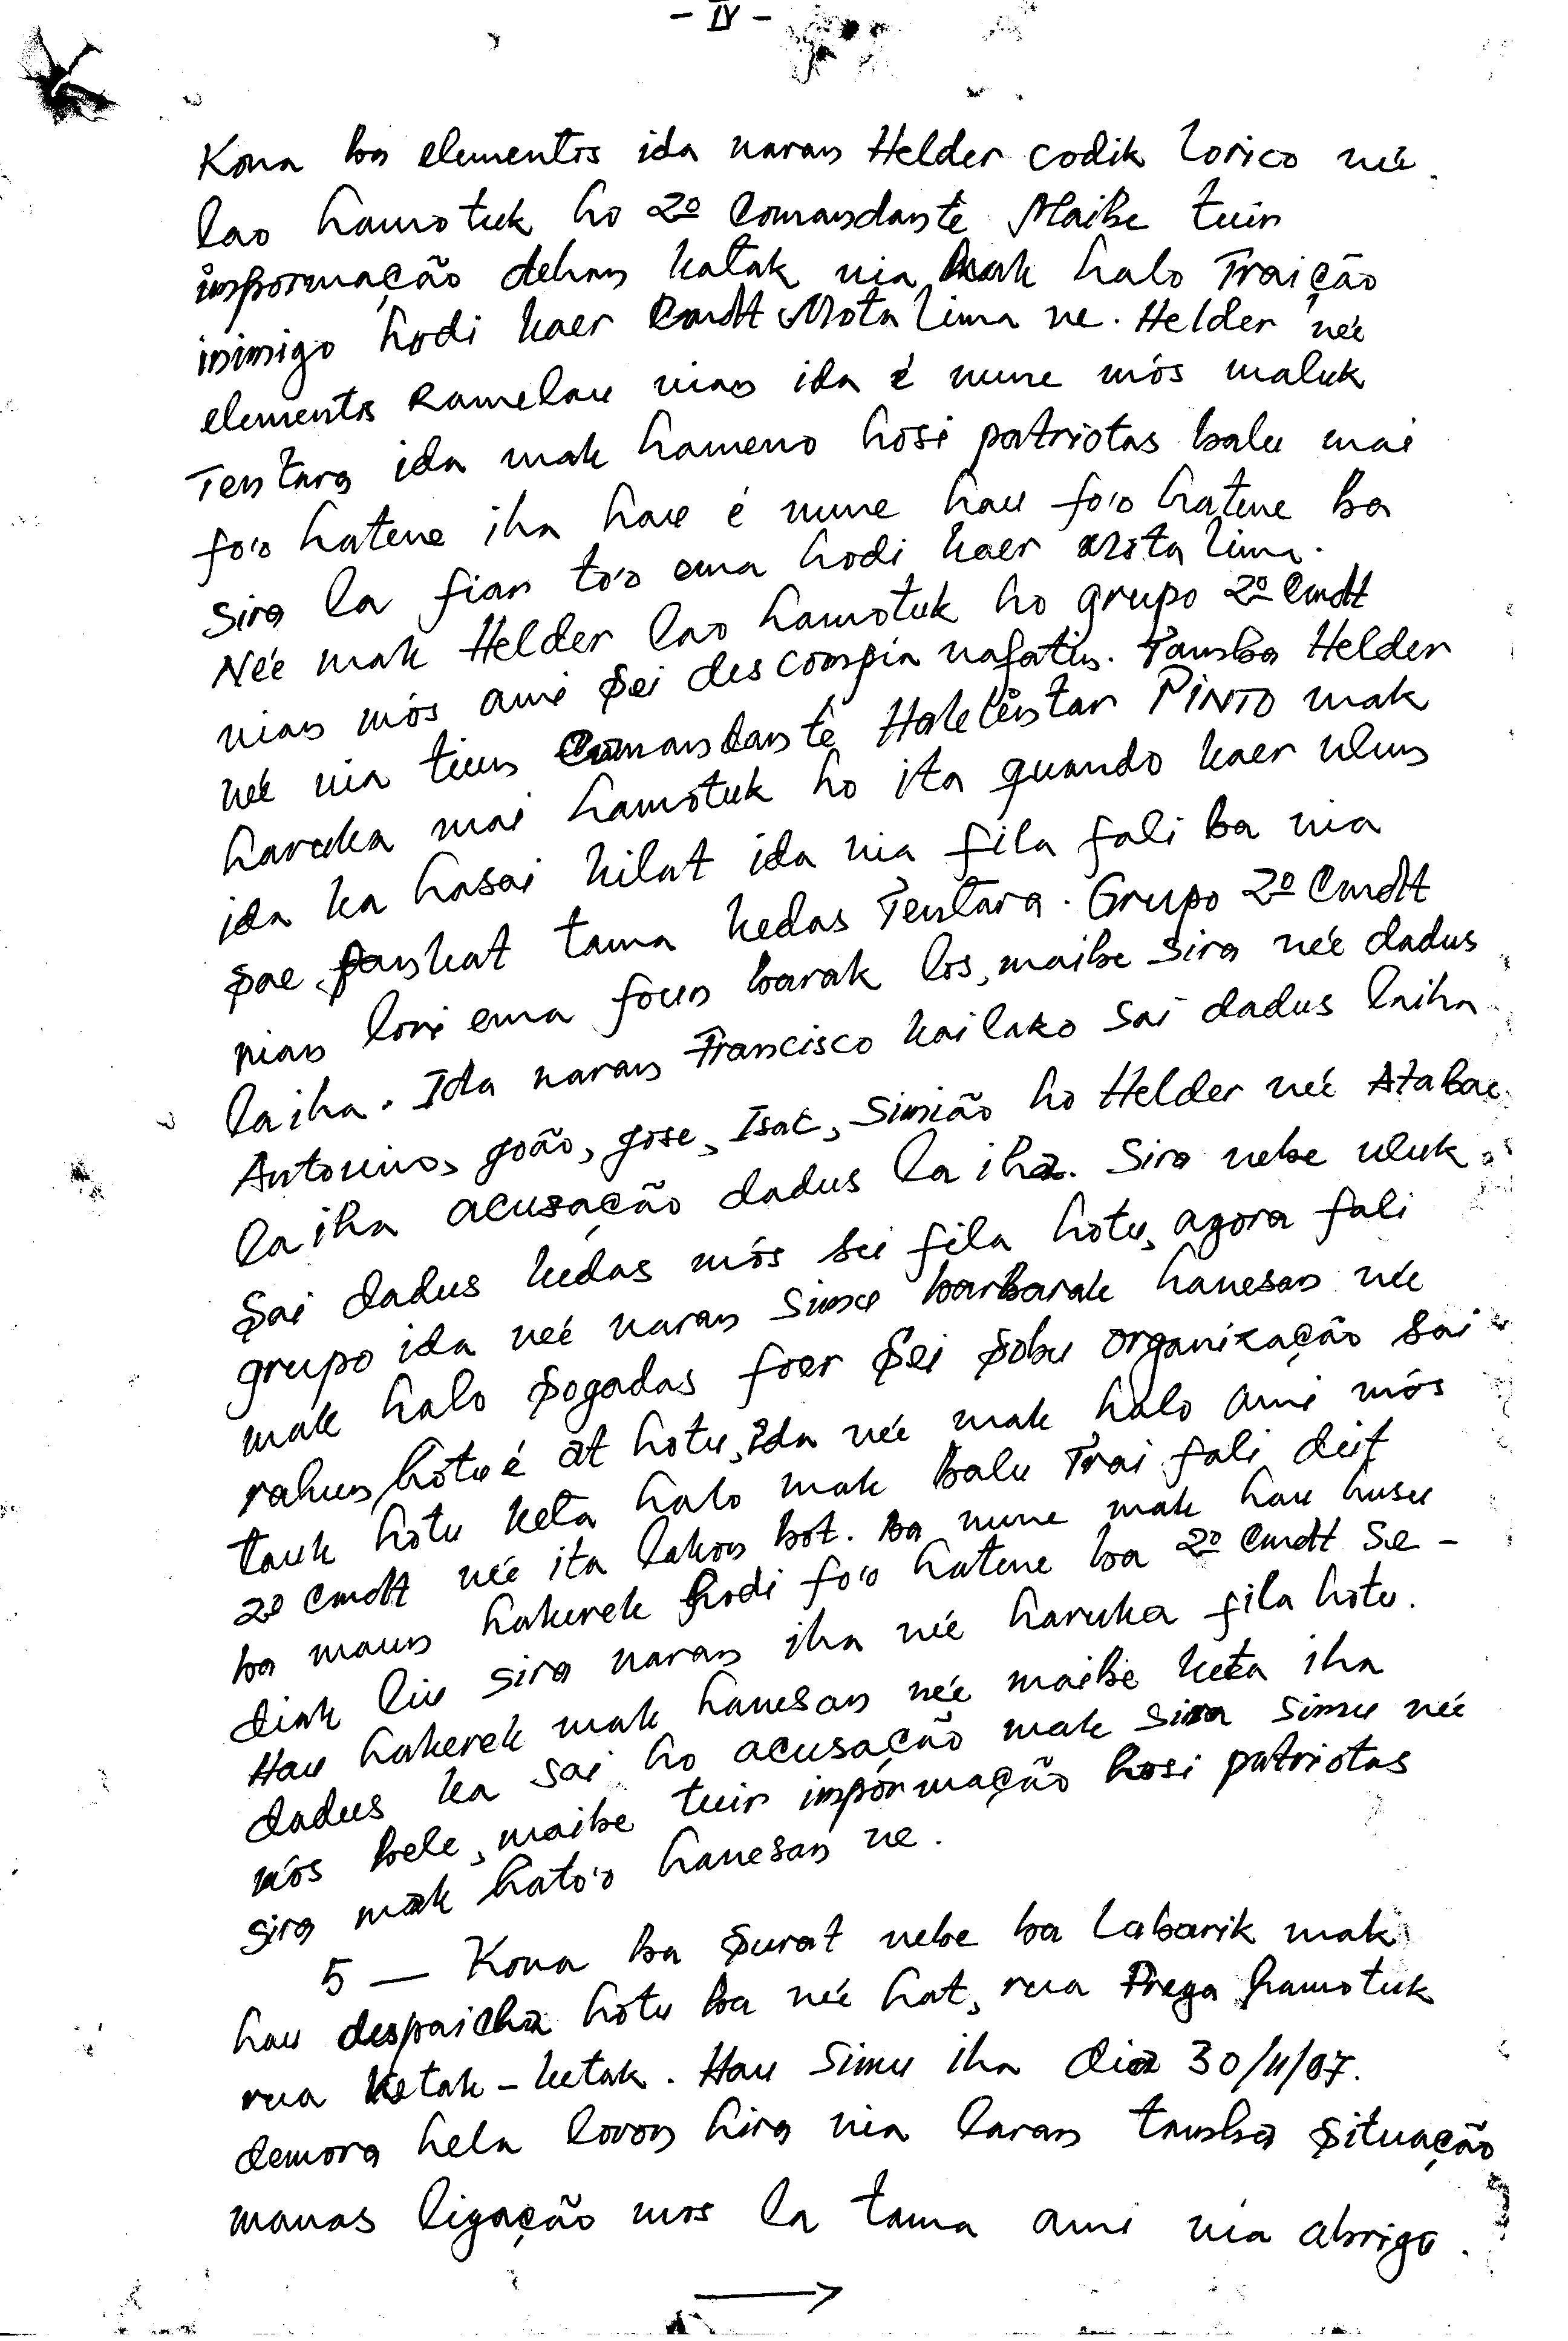 - IV -
Kona ba elementos ida naran Helder codik Lorico neé
lao hamotuk ho 2º Comandante Maibe tuir
informação dehan katak nia mak halo Traição
inimigo hodi kaer Cmdt Mota Lima ne. Helder neé
elementos Ramelau nian ida é nune mós maluk
Tentara ida mak hameno hosi patriotas balu mai
fo'o hatene iha hau é nune hau fo'o hatene ba
sira la fiar to'o ema hodi kaer Mota Lima.
Neé mak Helder lao hamotuk ho grupo 2º Cmdt
nian mós ami sei desconpia nafatin. Tamba Helder
neé nia tiun Comandante Haleintar PINTO mak
haruka mai hamotuk ho ita quando kaer ulun
ida ka hasai kilat ida nia fila fali ba nia
sae pankat tama kedas Tentara. Grupo 2º Cmdt
nian lori ema foun barak los, maibe sira neé dadus
laiha. Ida naran Francisco kailako sai dadus laiha
Antonino, João, Jose, Isac, Simião ho Helder neé Atabae
laiha acusação dadus laiha. Sira nebe uluk
sai dadus kedas mós sei fila hotu, agora fali
grupo ida neé naran simu barbarak hanesan neé
mak halo sogadas foer sei sobu organização sai
rahun hotu é at hotu, ida neé mak halo ami mós
tauk hotu keta halo mak balu Trai fali deit
2º Cmdt neé ita lakon bot. ba nune mak hau husu
ba maun hakerek hodi fo'o hatene ba 2º Cmdt se-
diak liu sira naran iha neé haruka fila hotu.
Hau hakerek mak hanesan neé maibe keta iha
dadus ka sai ho acusação mak sira simu neé
mós bele, maibe tuir informação hosi patriotas
sira mak hato'o hanesan ne.
5 — Kona ba surat nebe ba labarik mak
hau despaicha hotu ba neé hat, rua Prega hamotuk
rua ketak-ketak. Hau simu iha dia 30/11/97.
demora hela loron hira nia laran tamba situação
manas ligação mos la tama ami nia abrigo.
→